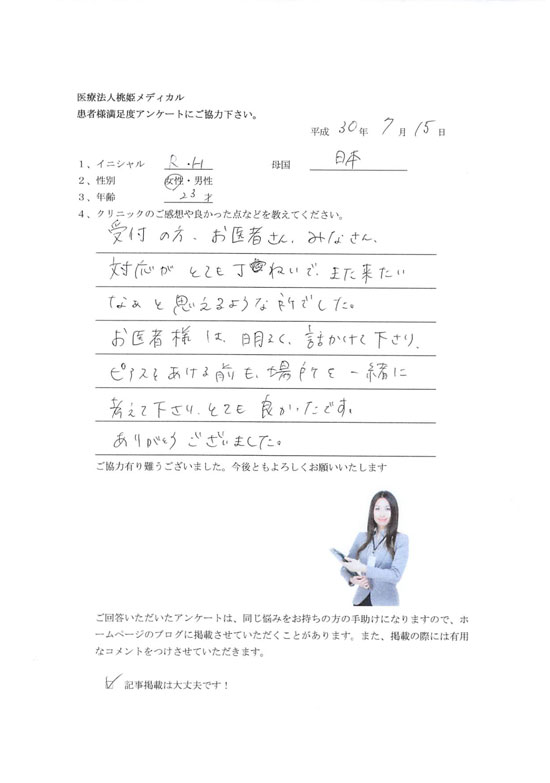 医療法人桃姫メディカル
患者様満足度アンケートにご協力下さい。
平成 30 年 7 月 15 日
1、イニシャル R.H 母国 日本
2、性別 女性・男性
3、年齢 23 才
4、クリニックのご感想や良かった点などを教えてください。
受付の方、お医者さん、みなさん、
対応がとても丁ねいで、また来たい
なぁと思えるような所でした。
お医者様は、明るく、話かけて下さり、
ピアスをあける前も、場所を一緒に
考えて下さり、とても良かったです。
ありがとうございました。
ご協力有り難うございました。今後ともよろしくお願いいたします
ご回答いただいたアンケートは、同じ悩みをお持ちの方の手助けになりますので、ホ
ームページのブログに掲載させていただくことがあります。また、掲載の際には有用
なコメントをつけさせていただきます。
記事掲載は大丈夫です!